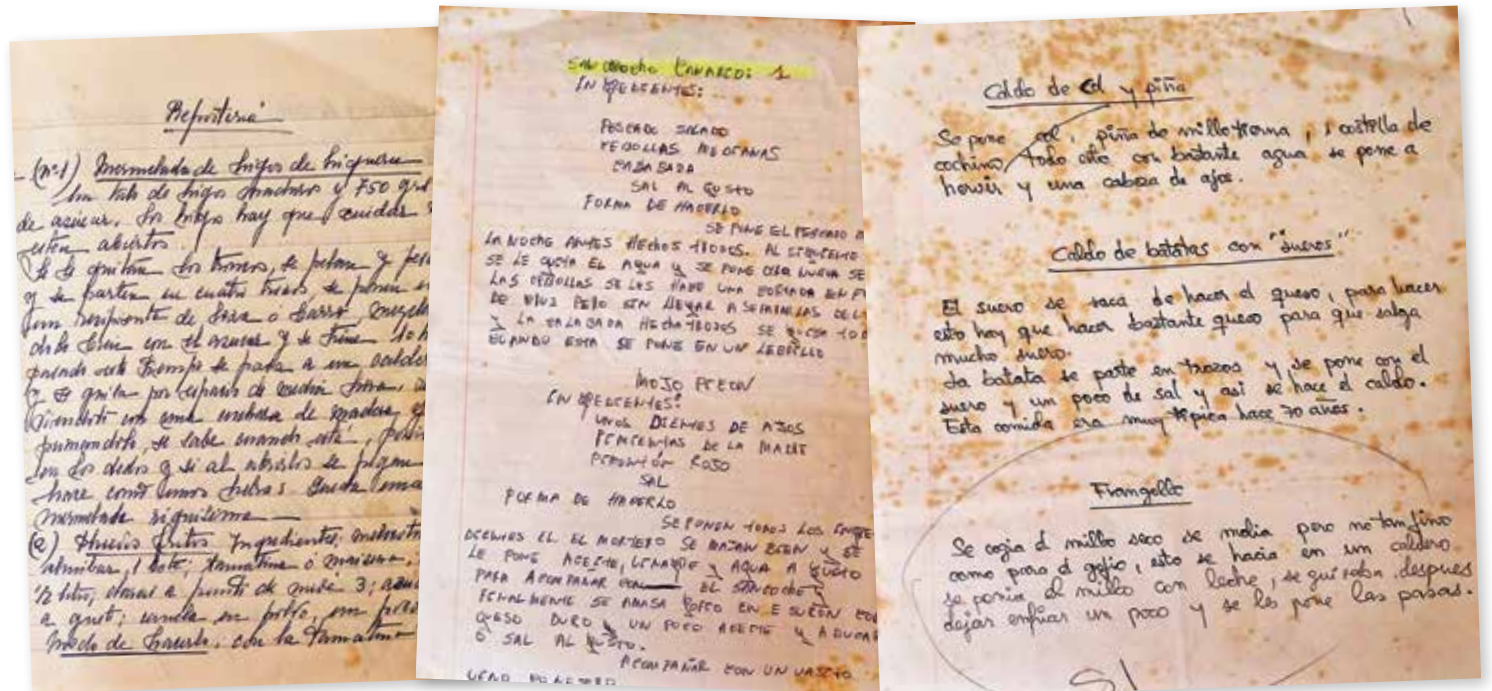 Repostería
(nº1) Mermelada de higos de higuera
Un kilo de higos maduros y 750 gr
de azúcar. Los higos hay que cuidar
estén abiertos
Se le quitan los troncos, se pelan y
y se parten en cuatro trozos, se ponen
un recipiente de loza o barro,
bien con el azucar y se tiene 10 h
pasado este tiempo se pasa a un caldero
y se guisa por espacio de media hora,
con una cuchara de madera
se sabe cuando está,
en los dedos y si al abrirlos se pegan
hace como unos hebras. Queda una
mermelada riquísima
(2) Huevos fritos Ingredientes:
almíbar, 1 bote; tamaitina o maizena,
1/2 litro, claras a punto de nieve 3;
a gusto; canela en polvo, un poco
Modo de hacerlo, con la tamaitina
SANCOCHO CANARIO: 1
INGREDIENTES:
PESCADO SALADO
CEBOLLAS MEDIANAS
CALABADA
SAL AL GUSTO
FORMA DE HACERLO
SE PONE EL PESCADO
LA NOCHE ANTES HECHOS TROSOS. AL SIGUIENTE
SE LE QUITA EL AGUA Y SE PONE OTRA NUEVA SE
LAS CEBOLLAS SE LES HACE UNA CORTADA EN
DE CRUS PERO SIN LLEGAR A SEPARARLAS DE
Y LA CALABADA HECHA TROSOS SE GUISA TODO
CUANDO ESTA SE PONE EN UN LEBRILLO
MOJO PICON
INGREDIENTES:
UNOS DIENTES DE AJOS
PIMIENTAS DE LA MADRE
PIMENTÓN ROJO
SAL
FORMA DE HACERLO
SE PONEN TODOS LOS INGRE
DIENTES EL EL MORTERO SE MAJAN BIEN Y SE
LE PONE ACEITE, VINAGRE Y AGUA A GUSTO
PARA ACOMPAÑAR CON EL SANCOCHO
FINALMENTE SE AMASA GOFIO EN E SURÓN CON
QUESO DURO Y UN POCO ACEITE Y ADUCAR
O SAL AL GUSTO.
ACOMPAÑAR CON UN VASITO
VINO
Caldo de col y piña
Se pone col, piña de millo tierna, 1 costilla de
cochino, todo esto con bastante agua se pone a
hervir y una cabeza de ajos.
Caldo de batatas con "sueros"
El suero se saca de hacer el queso, para hacer
esto hay que hacer bastante queso para que salga
mucho suero.
La batata se parte en trozos y se pone con el
suero y un poco de sal y así se hace el caldo.
Esta comida era muy típica hace 70 años.
Frangollo
Se cogia el millo seco se molia pero no tan fino
como para el gofio, esto se hacia en un caldero
se ponia el millo con leche, se guisaba, despues
dejar enfriar un poco y se les pone las pasas.
SI